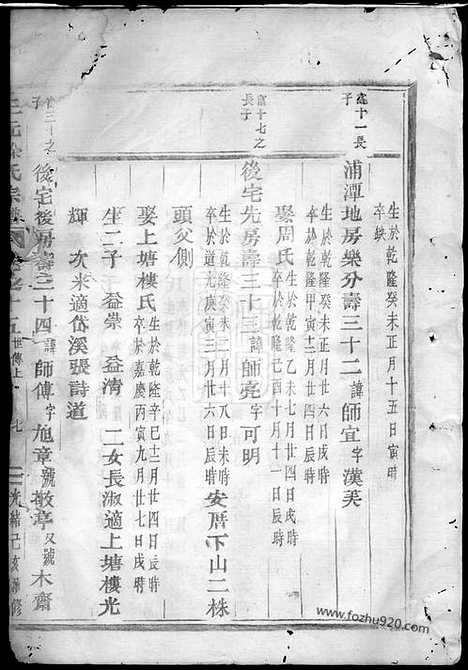 生於乾隆癸未正月十五日寅時
卒缺
壽十一長
子
浦潭地房樂分壽三十二諱師宜字漢美
生於乾隆癸未正月廿六日戌時
卒於乾隆甲寅十二月廿四日辰時
娶周氏
生於乾隆乙未七月廿四日戌時
卒於乾隆己酉十月十一日辰時
富十七之
長子
後宅先房壽三十三諱師亮字可明
生於乾隆癸未二月十八日未時
卒於道光庚寅三月廿六日辰時
安厝下山二株
頭父側
娶上塘樓氏
生於乾隆辛巳十二月廿四日辰時
卒於嘉慶丙寅九月廿七日戌時
生二子 益崇 益清 二女長淑適上塘樓光
輝 次米適岱溪張詩道
三十之
子
後宅後房壽三十四諱師傅字旭章號敬亭又號木齋
氏宗譜
世傳上
七
光緒己亥重修
www.fozhu920.com